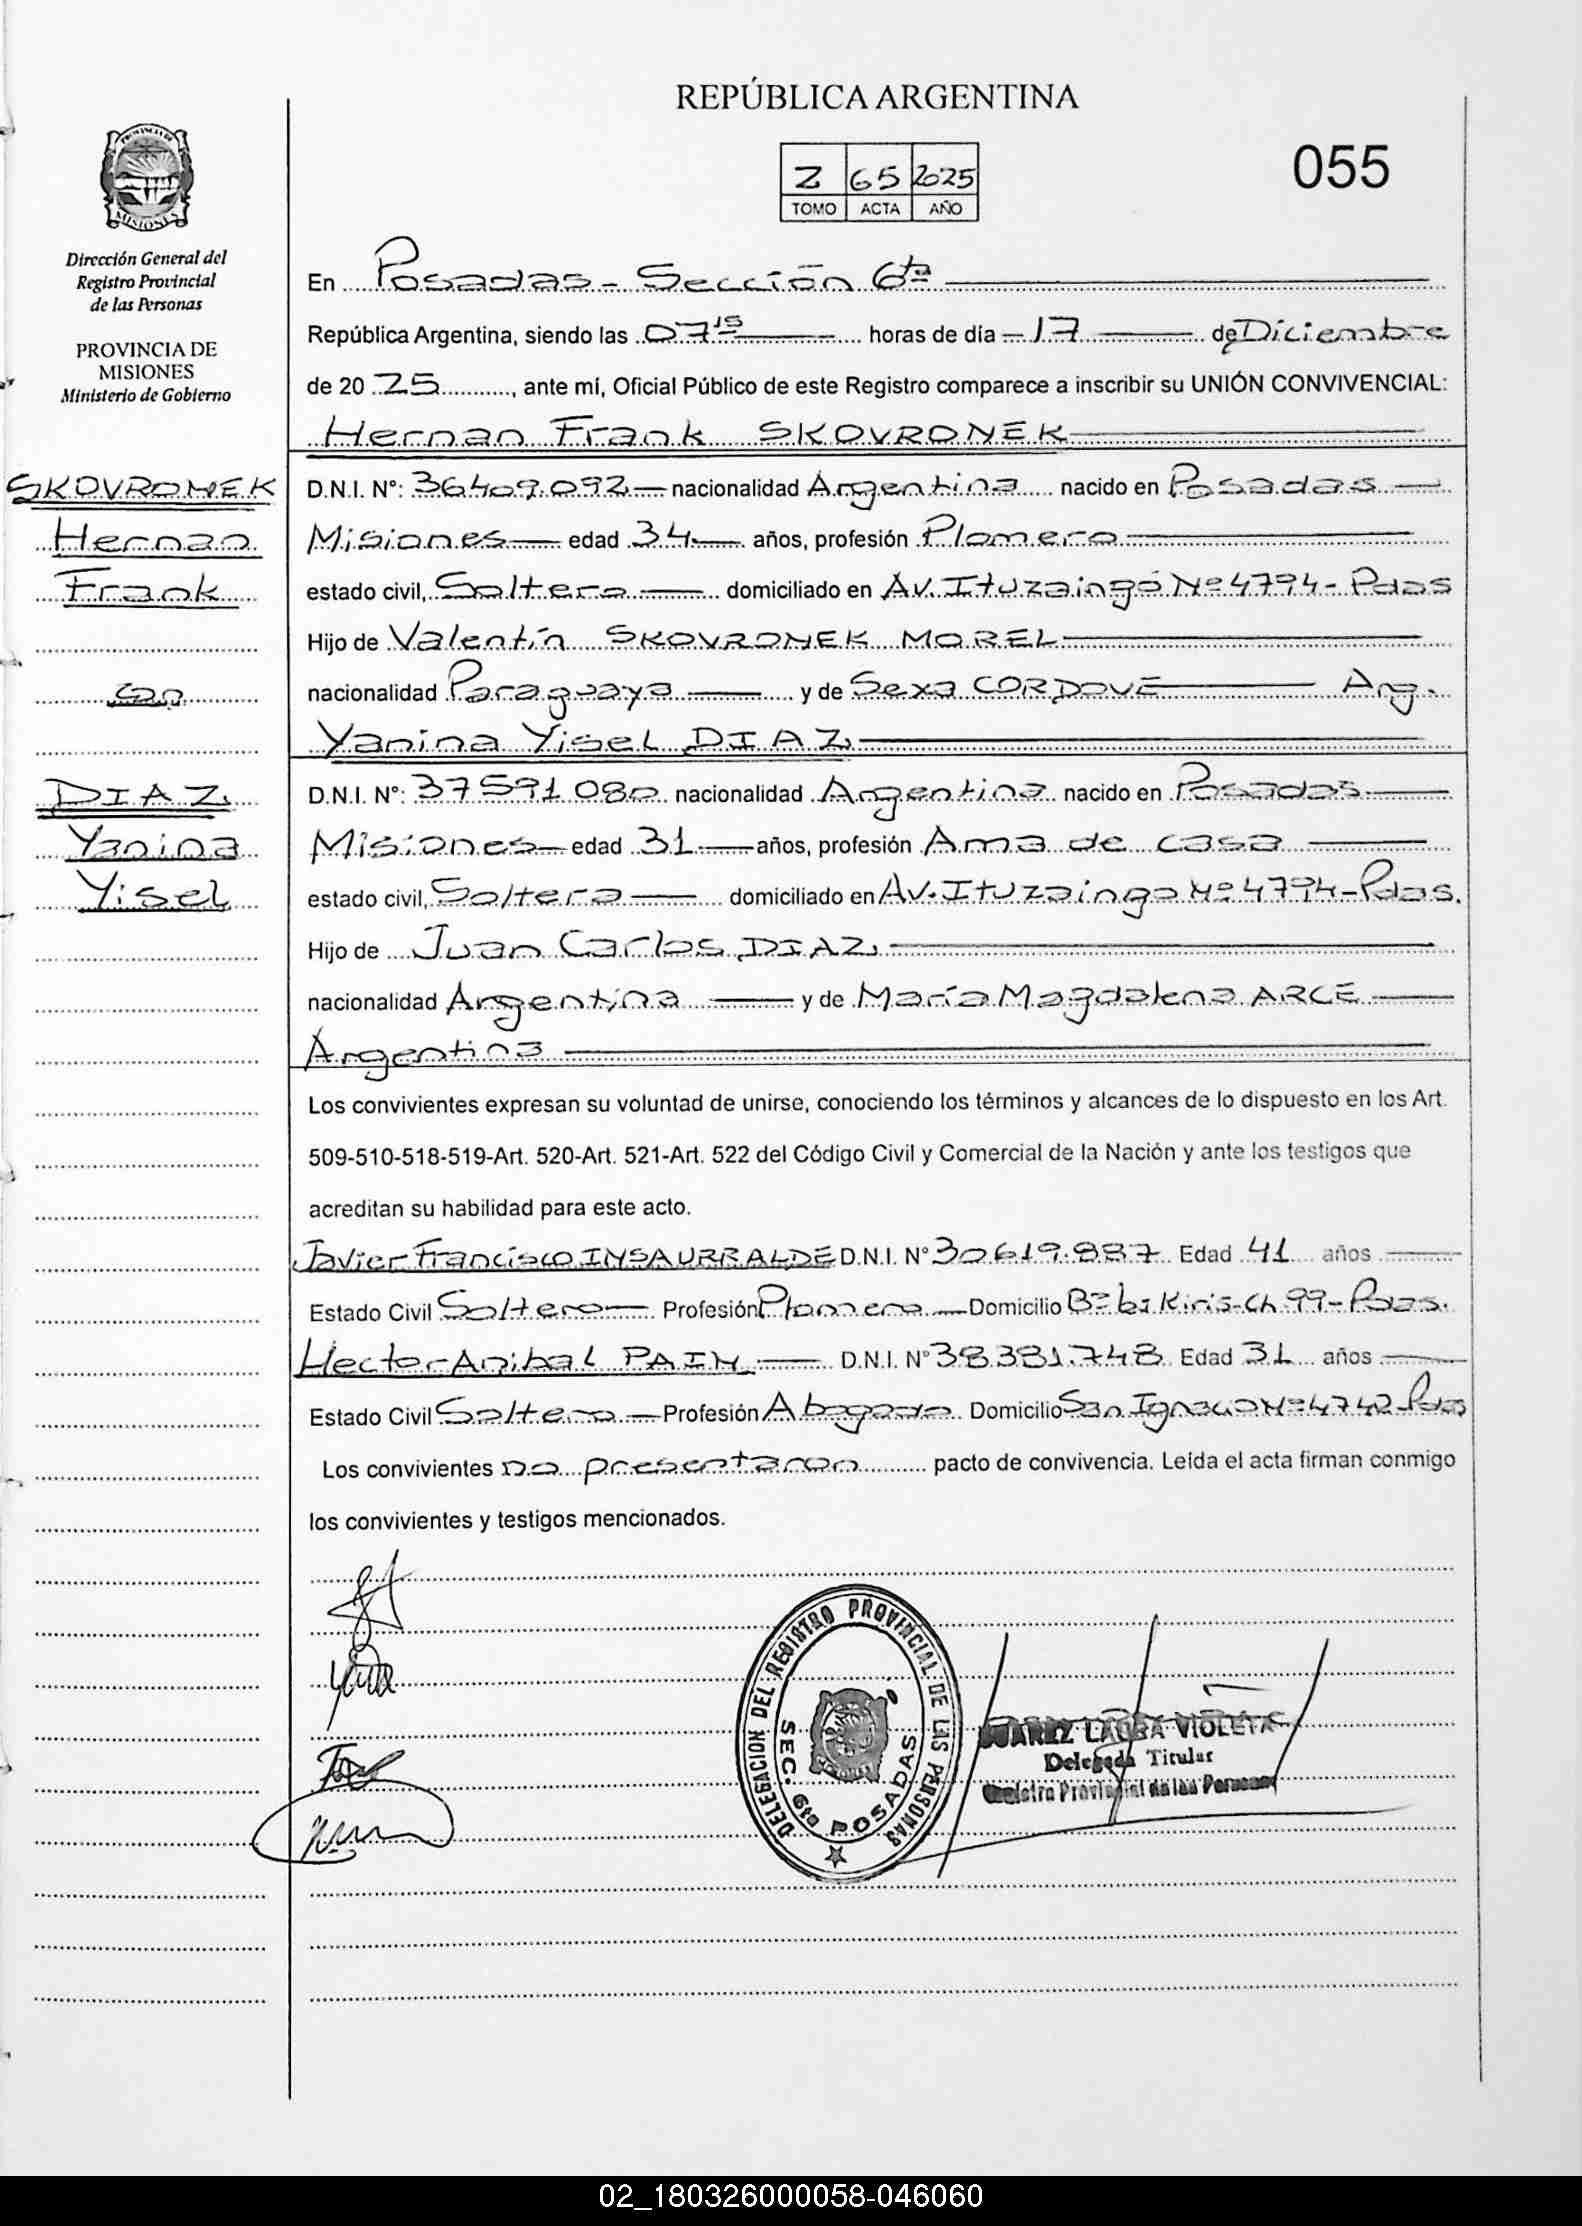 REPÚBLICA ARGENTINA
2 65 2025
TOMO ACTA AÑO
055
PROVINCIA DE MISIONES
Dirección General del
Registro Provincial
de las Personas
PROVINCIA DE
MISIONES
Ministerio de Gobierno
SKOVRONEK
Hernan
Frank
con
DIAZ
Yanina
Yisel
En Posadas - Sección 6ta
República Argentina, siendo las 07 15 horas de día 17 de Diciembre
de 20 25, ante mí, Oficial Público de este Registro comparece a inscribir su UNIÓN CONVIVENCIAL:
Hernan Frank SKOVRONEK
D.N.I. N°: 36409.092 nacionalidad Argentina nacido en Posadas
Misiones edad 34 años, profesión Plomero
estado civil, Soltero domiciliado en Av. Ituzaingó Nº 4794 - Pdas
Hijo de Valentín SKOVRONEK MOREL
nacionalidad Paraguaya y de Sexa CORDOVE Arg.
Yanina Yisel DIAZ
D.N.I. N°: 37591080 nacionalidad Argentina nacido en Posadas
Misiones edad 31 años, profesión Ama de casa
estado civil, Soltera domiciliado en Av. Ituzaingo Nº 4794 - Pdas.
Hijo de Juan Carlos DIAZ
nacionalidad Argentina y de María Magdalena ARCE
Argentina
Los convivientes expresan su voluntad de unirse, conociendo los términos y alcances de lo dispuesto en los Art.
509-510-518-519-Art. 520-Art. 521-Art. 522 del Código Civil y Comercial de la Nación y ante los testigos que
acreditan su habilidad para este acto.
Javier Francisco INSAURRALDE D.N.I. N° 30.619.887 Edad 41 años
Estado Civil Soltero Profesión Plomero Domicilio Bº Ch 99 - Pdas.
Hector Anibal PAIN D.N.I. N° 38.381.748 Edad 31 años
Estado Civil Soltero Profesión Abogado Domicilio San Ignacio Nº 4742 Pdas
Los convivientes no presentaron pacto de convivencia. Leída el acta firman conmigo
los convivientes y testigos mencionados.
DELEGACION DEL REGISTRO PROVINCIAL DE LAS PERSONAS
SEC. 6ta POSADAS
SUAREZ LAURA VIOLETA
Delegada Titular
Registro Provincial de las Personas
02_180326000058-046060